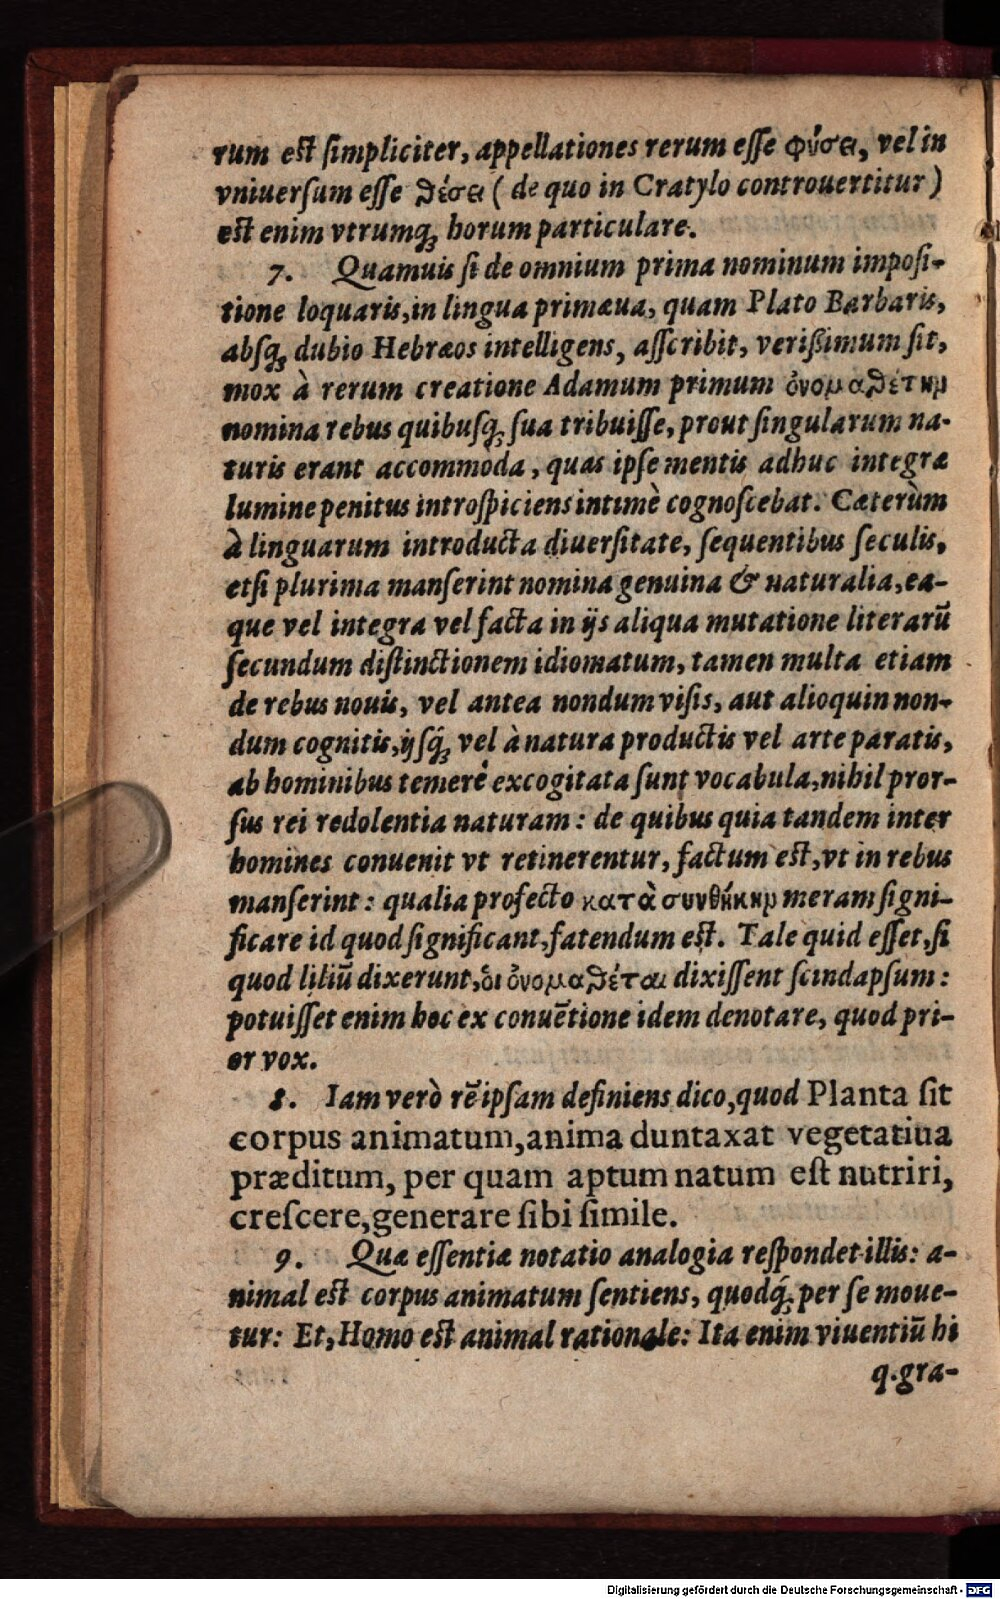 rum est ſimpliciter, appellationes rerum eſſe φύσει, vel in
vniuerſum eſſe θέσει ( de quo in Cratylo controuertitur )
est enim vtrumq; horum particulare.
7. Quamuis ſi de omnium prima nominum impoſi-
tione loquaris, in lingua primæua, quam Plato Barbaris,
abſq; dubio Hebræos intelligens, aſſcribit, verißimum ſit,
mox à rerum creatione Adamum primum ὀνομαθέτην
nomina rebus quibuſq; ſua tribuiſſe, prout ſingularum na-
turis erant accommòda, quas ipſe mentis adhuc integræ
lumine penitus introſpiciens intimè cognoſcebat. Cæterùm
à linguarum introducta diuerſitate, ſequentibus ſeculis,
etſi plurima manſerint nomina genuina & naturalia, ea-
que vel integra vel facta in ijs aliqua mutatione literarũ
ſecundum diſtinctionem idiomatum, tamen multa etiam
de rebus nouis, vel antea nondum viſis, aut alioquin non-
dum cognitis, ijſq́; vel à natura productis vel arte paratis,
ab hominibus temerè excogitata ſunt vocabula, nihil pror-
ſus rei redolentia naturam: de quibus quia tandem inter
homines conuenit vt retinerentur, factum est, vt in rebus
manſerint: qualia profecto κατὰ συνθήκην meram ſigni-
ficare id quod ſignificant, fatendum est. Tale quid eſſet, ſi
quod liliũ dixerunt, ὁι ὀνομαθέται dixiſſent ſcindapſum:
potuiſſet enim hoc ex conuẽtione idem denotare, quod pri-
or vox.
8. Iam verò rẽ ipſam definiens dico, quod Planta ſit
corpus animatum, anima duntaxat vegetatiua
præditum, per quam aptum natum eſt nutriri,
creſcere, generare ſibi ſimile.
9. Quæ eſſentiæ notatio analogia reſpondet illis: a-
nimal est corpus animatum ſentiens, quodq́; per ſe moue-
tur: Et, Homo est animal rationale: Ita enim viuentiũ hi
q. gra-
Digitalisierung gefördert durch die Deutsche Forschungsgemeinschaft - DFG